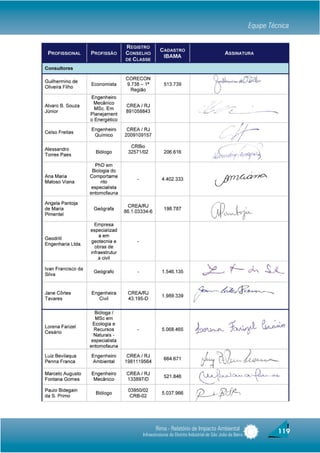 Equipe Técnica
PROFISSIONAL PROFISSÃO REGISTRO CONSELHO DE CLASSE CADASTRO IBAMA ASSINATURA
Consultores
Guilhermino de Oliveira Filho Economista CORECON 9.738 – 1ª Região 513.739
Alvaro B. Souza Júnior Engenheiro Mecânico MSc. Em Planejamento Energético CREA / RJ 891058843
Celso Freitas Engenheiro Químico CREA / RJ 2009109157
Alessandro Torres Paes Biólogo CRBio 32571/02 206.616
Ana Maria Matoso Viana PhD em Biologia do Comportamento especialista entomofauna - 4.402.333
Angela Pantoja de Maria Pimentel Geógrafa CREA/RJ 86.1.03334-6 198.787
Geodriil Engenharia Ltda. Empresa especializada em geotecnia e obras de infraestrutura civil -
Ivan Francisco da Silva Geógrafo - 1.546.135
Jane Côrtes Tavares Engenheira Civil CREA/RJ 43.195-D 1.989.339
Lorena Farizel Cesário Bióloga / MSc em Ecologia e Recursos Naturais - especialista entomofauna - 5.068.465
Luiz Bevilaqua Penna Franca Engenheiro Ambiental CREA / RJ 1981119564 664.671
Marcelo Augusto Fontana Gomes Engenheiro Mecânico CREA / RJ 133897/D 521.846
Paulo Bidegain da S. Primo Biólogo 03850/02 CRB-02 5.037.966
Rima - Relatório de Impacto Ambiental
Infraestruturas do Distrito Industrial de São João da Barra
119